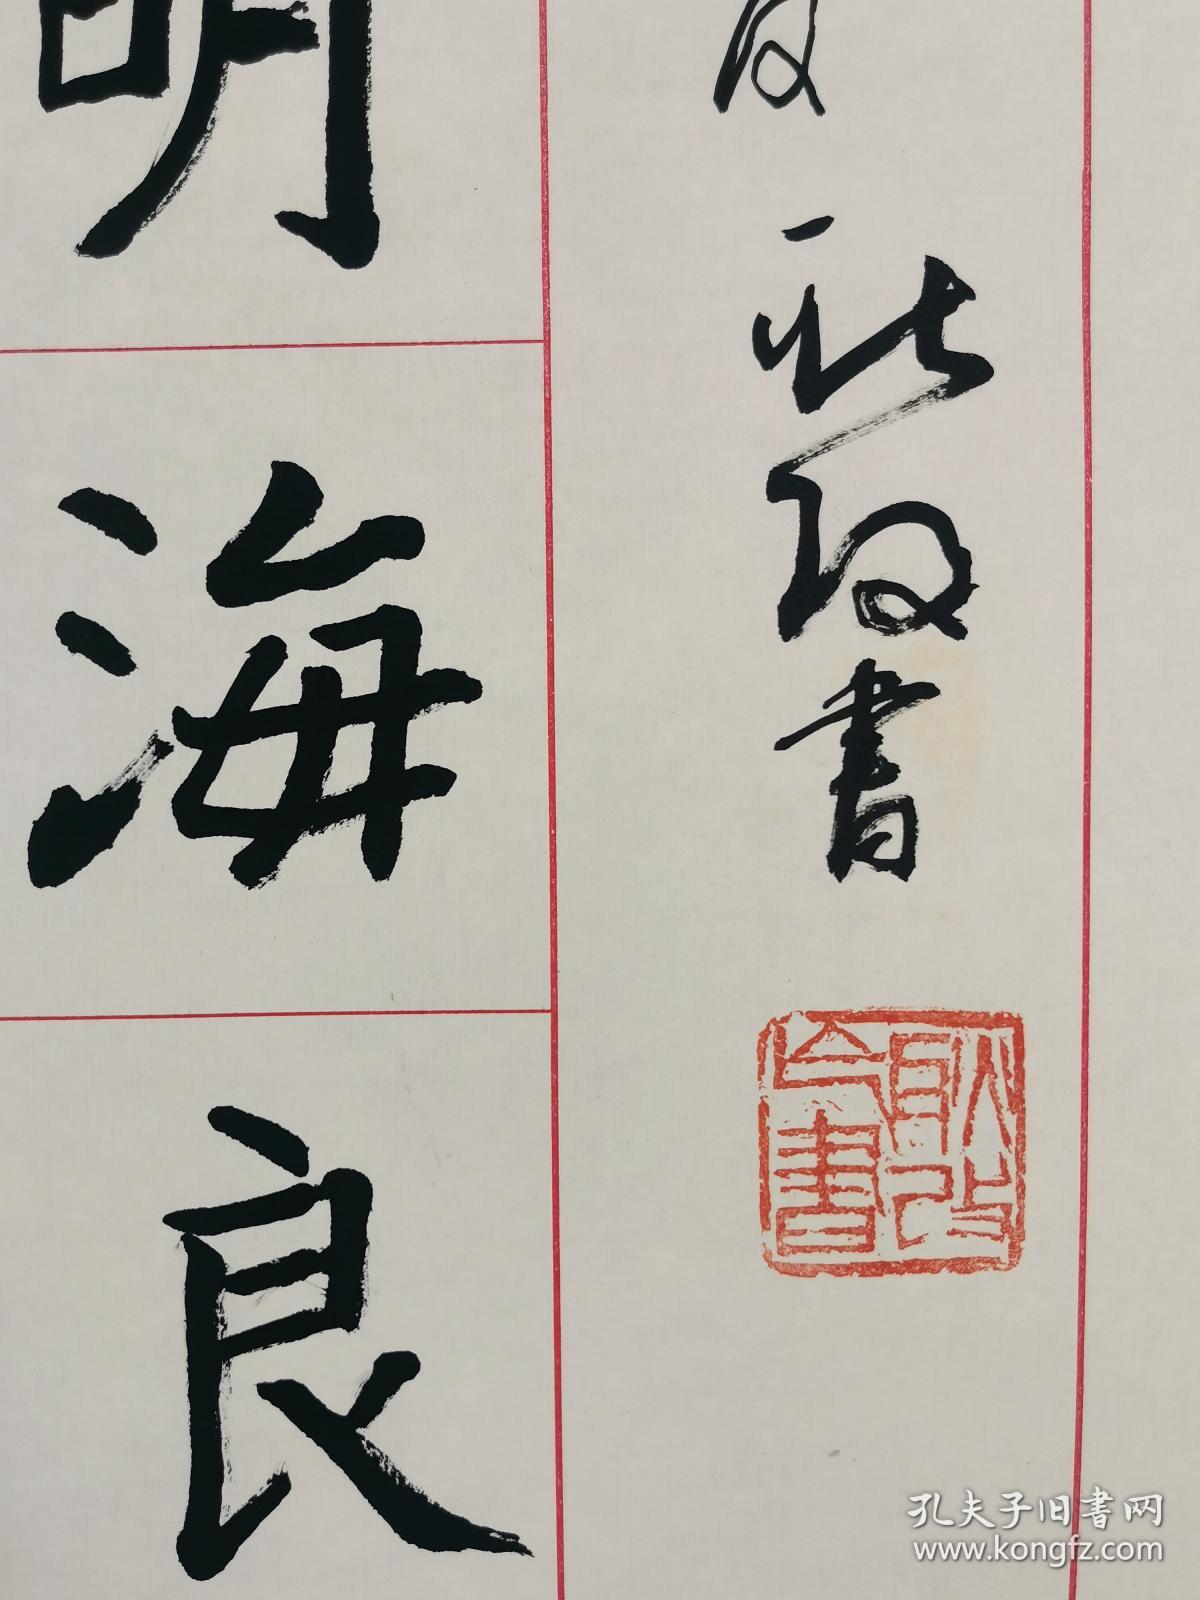 明海良
耿改書
孔夫子旧书网
www.kongfz.com